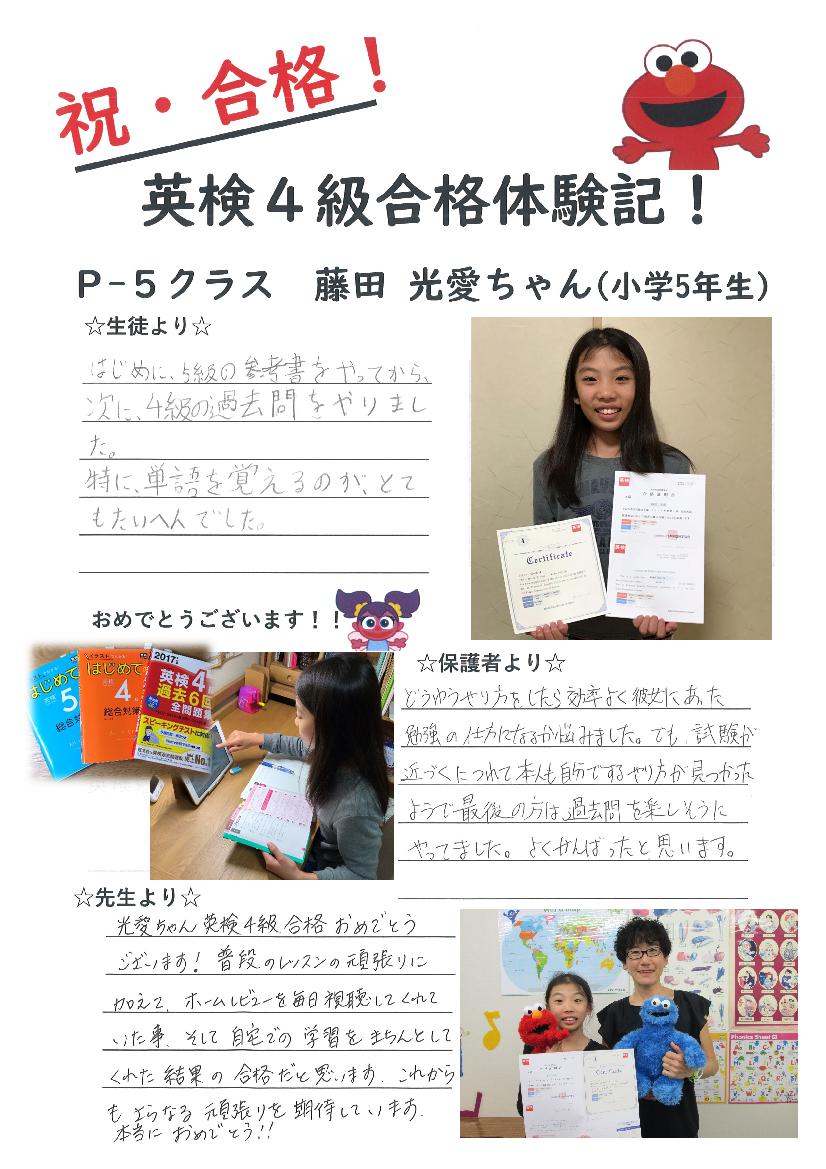 祝・合格！
英検４級合格体験記！
Ｐ-５クラス　藤田 光愛ちゃん(小学5年生)
☆生徒より☆
はじめに、5級の参考書をやってから、
次に、4級の過去問をやりまし
た。
特に、単語を覚えるのが、とて
もたいへんでした。
おめでとうございます！！
はじめて
英検
5
総合対策
はじめて
英検
4
級
総合対策
2017
英検4
過去6回
全問題集
スピーキングテストに対応
No.1
英検
合格証明書
Certificate
☆保護者より☆
どうゆうやり方をしたら効率よく彼女にあった
勉強の仕方になるか悩みました。でも、試験が
近づくにつれて本人も自分でするやり方が見つかった
ようで最後の方は過去問を楽しそうに
やってました。よくがんばったと思います。
☆先生より☆
光愛ちゃん 英検4級 合格 おめでとう
ございます！ 普段のレッスンの頑張りに
加えて、ホームレビューを毎日視聴してくれて
いた事、そして自宅での学習をきちんとして
くれた結果の合格だと思います。これから
もさらなる頑張りを期待しています。
本当に おめでとう!!
Phonics Sheet